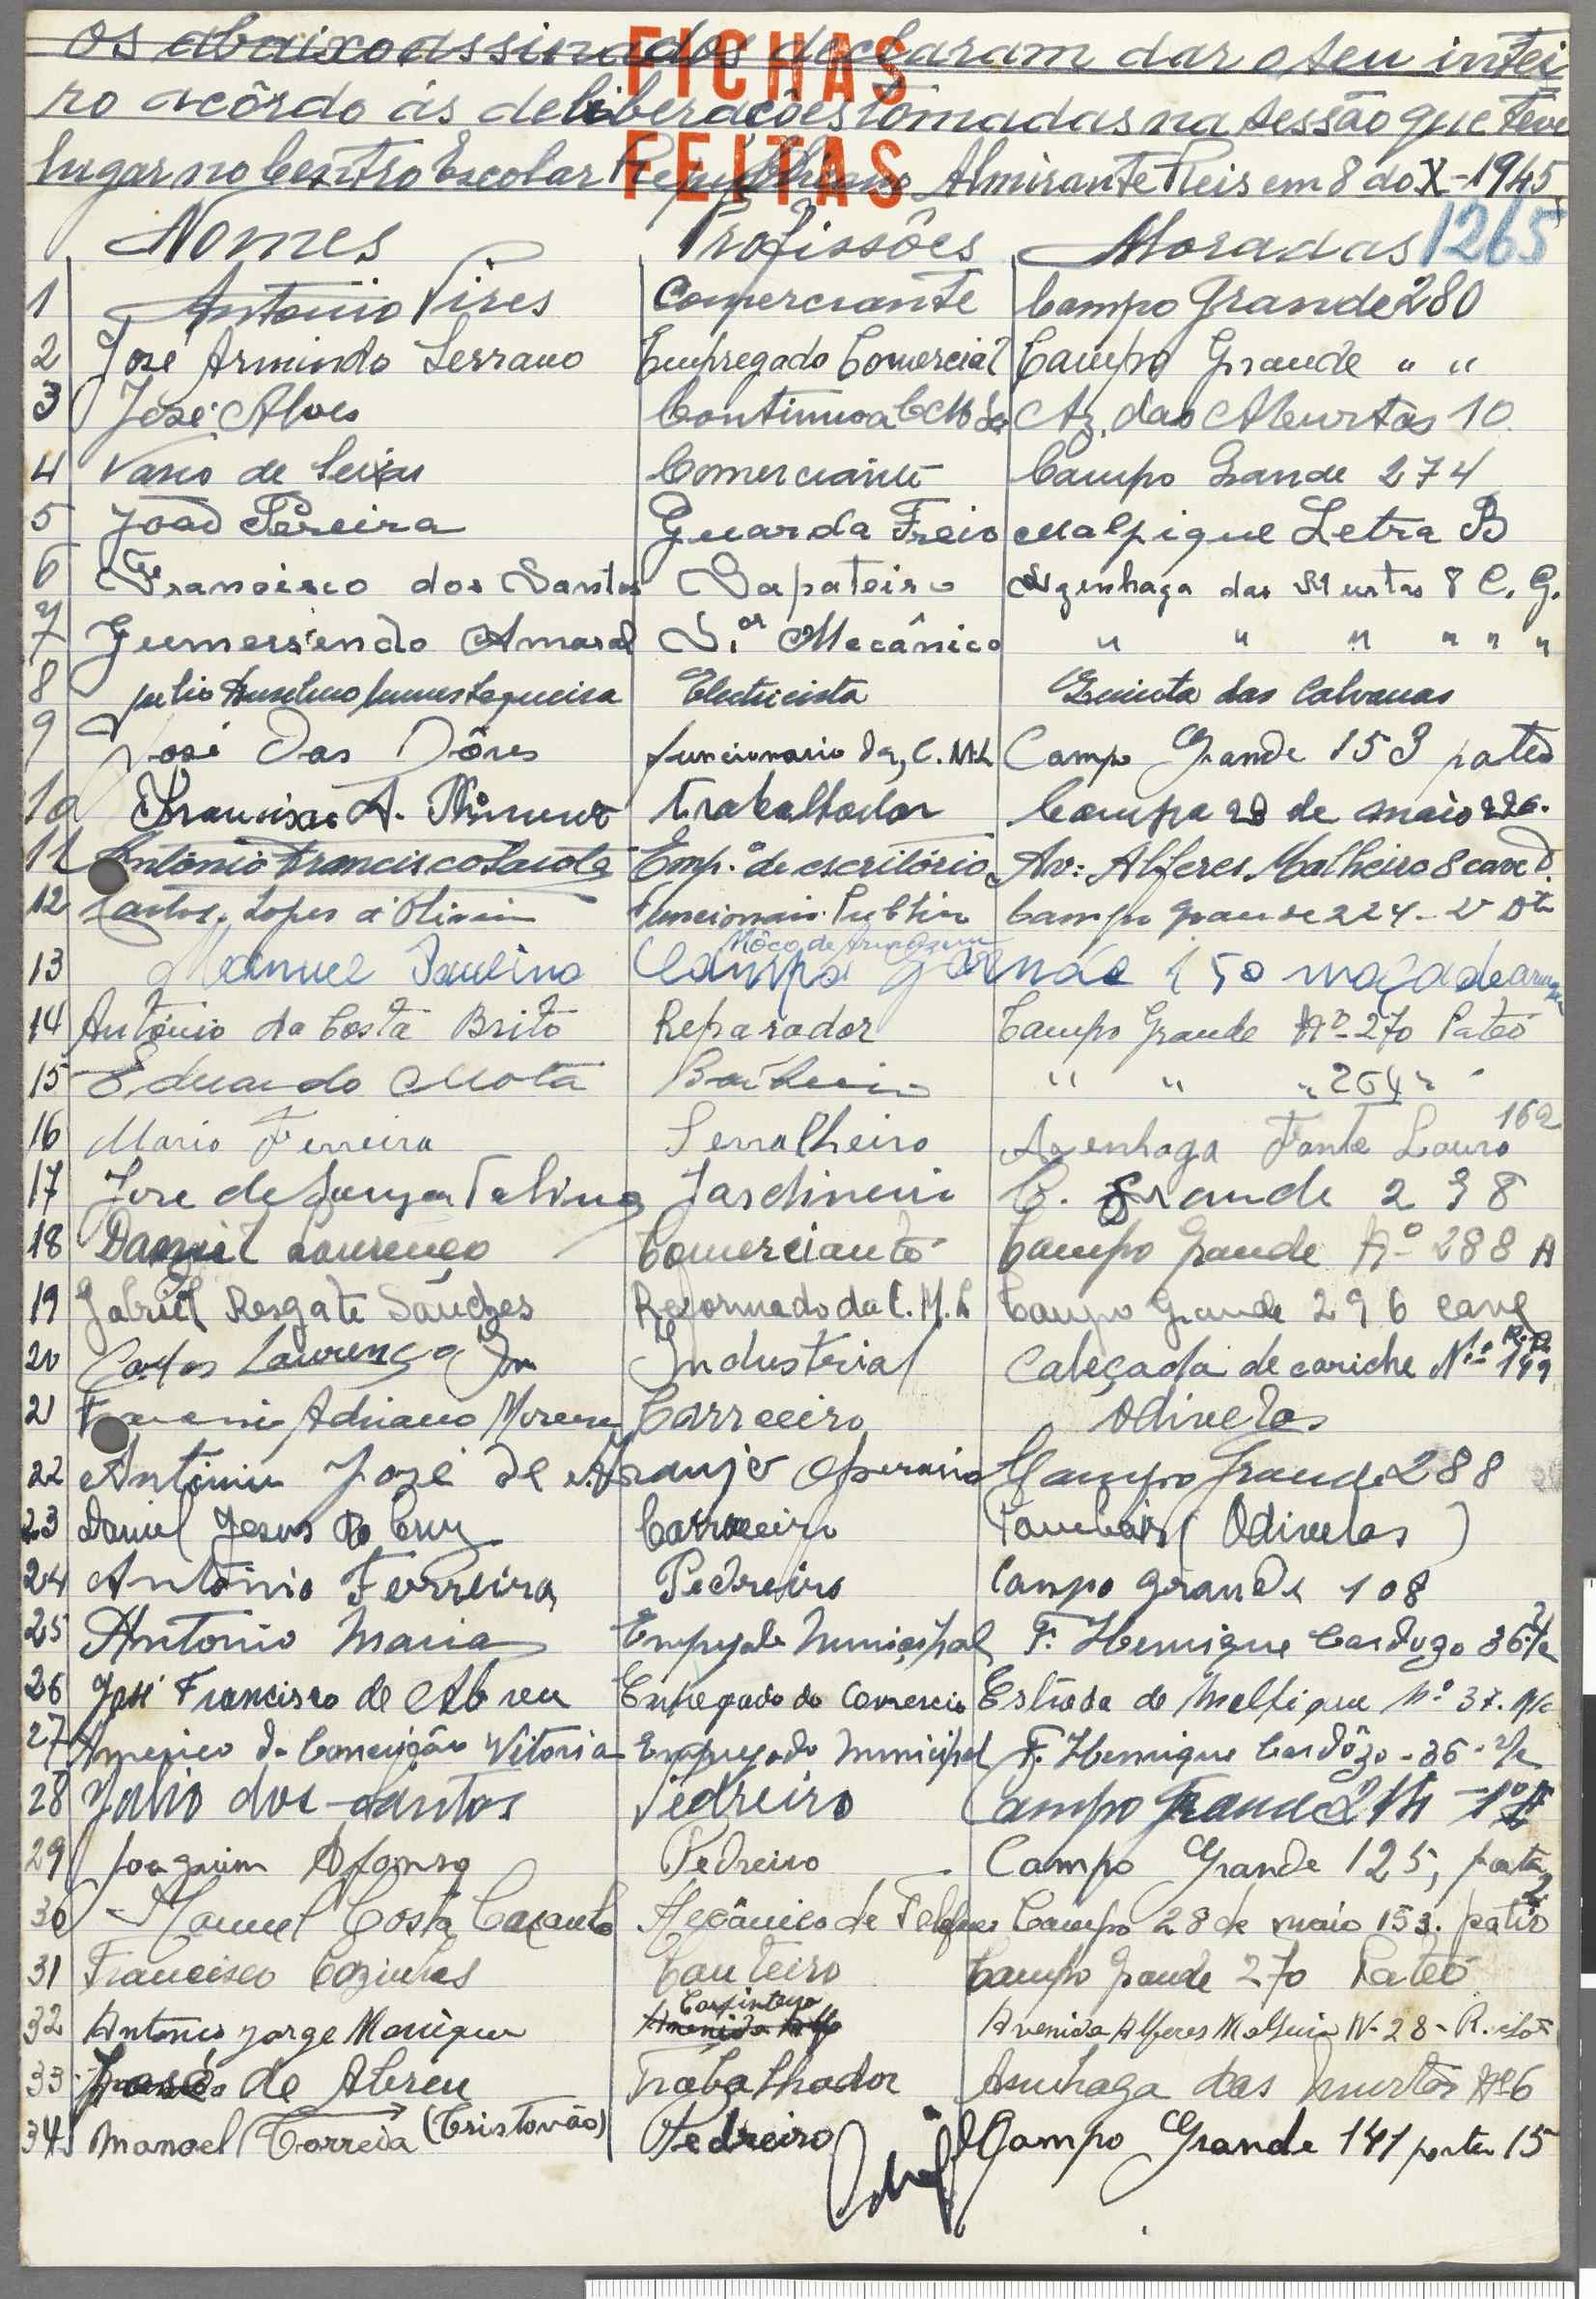 os abaixo assinados declaram dar o seu intei
ro acôrdo ás deliberações tomadas na sessão que teve
lugar no Centro Escolar Republicano Almirante Reis em 8 do X-1945
FICHAS
FEITAS
1265
Nomes Profissões Moradas
1 Antonio Pires Comerciante Campo Grande 280
2 José Armindo Serrano Empregado Comercial Campo Grande " "
3 José Alves Continuo a C M Az. das Murtas 10
4 Vasco de Comerciante Campo Grande 274
5 João Pereira Guarda Freio Malpique Letra B
6 Francisco dos Santos Sapateiro Azenhaga das Murtas 8 C. G.
7 Gumersindo Amaral S.or Mecânico " " " " " "
8 Julio Sequeira Electricista Quinta das Calvanas
9 José Das Dôres funcionario da, C. M. L Campo Grande 153 pateo
10 Francisco A. trabalhador Campo 28 de maio 226.
11 Antonio Francisco Emp.º de escritório Av: Alferes Malheiro 8 cave D.
12 Carlos Lopes Funcionario Publico Campo Grande 224 - 2º Dto
Môço de Armazem
13 Manuel Paulino Campo Grande 150 moço de
14 António da Costa Brito Reparador Campo Grande Nº 270 Pateo
15 Eduardo Mota Barbeiro " " " 264 "
16 Mario Ferreira Serralheiro Azenhaga Fonte Louro 162
17 Jose de Souza Jardineiro C. Grande 238
18 Daniel Lourenço Comerciante Campo Grande Nº 288 A
19 Gabriel Resgate Sanches Reformado da C. M. L Campo Grande 296 cave
20 Carlos Lourenço Jr Industrial Calçada de cariche N.º 149
21 Adriano Carroceiro Odivelas
22 António José de Araujo Operario Campo Grande 288
23 Daniel Jesus da Cruz Carroceiro (Odivelas)
24 António Ferreira Pedreiro Campo grande 108
25 Antonio Maria Empregado Municipal F. Henrique Cardozo 36
26 José Francisco de Abreu Empregado do Comercio Estrada de Malpique Nº 37. R/c
27 Americo da Conceição Vitoria Empregado Municipal F. Henrique Cardôzo - 36 - r/c
28 Julio dos santos Pedreiro Campo Grande
29 Joaquim Afonso Pedreiro Campo Grande 125, porta 2
30 Manuel Costa Mecânico de Telefones Campo 28 de maio 153. patio
31 Francisco Cozinhas Canteiro Campo Grande 270 Pateo
32 Antonio Jorge Carpinteiro Avenida Alferes Malheiro N- 28 - R.
33 José de Abreu Trabalhador Asinhaga das Murtas Nº 6
34 Manoel Correia (Cristovão) Pedreiro Campo Grande 141 porta 15